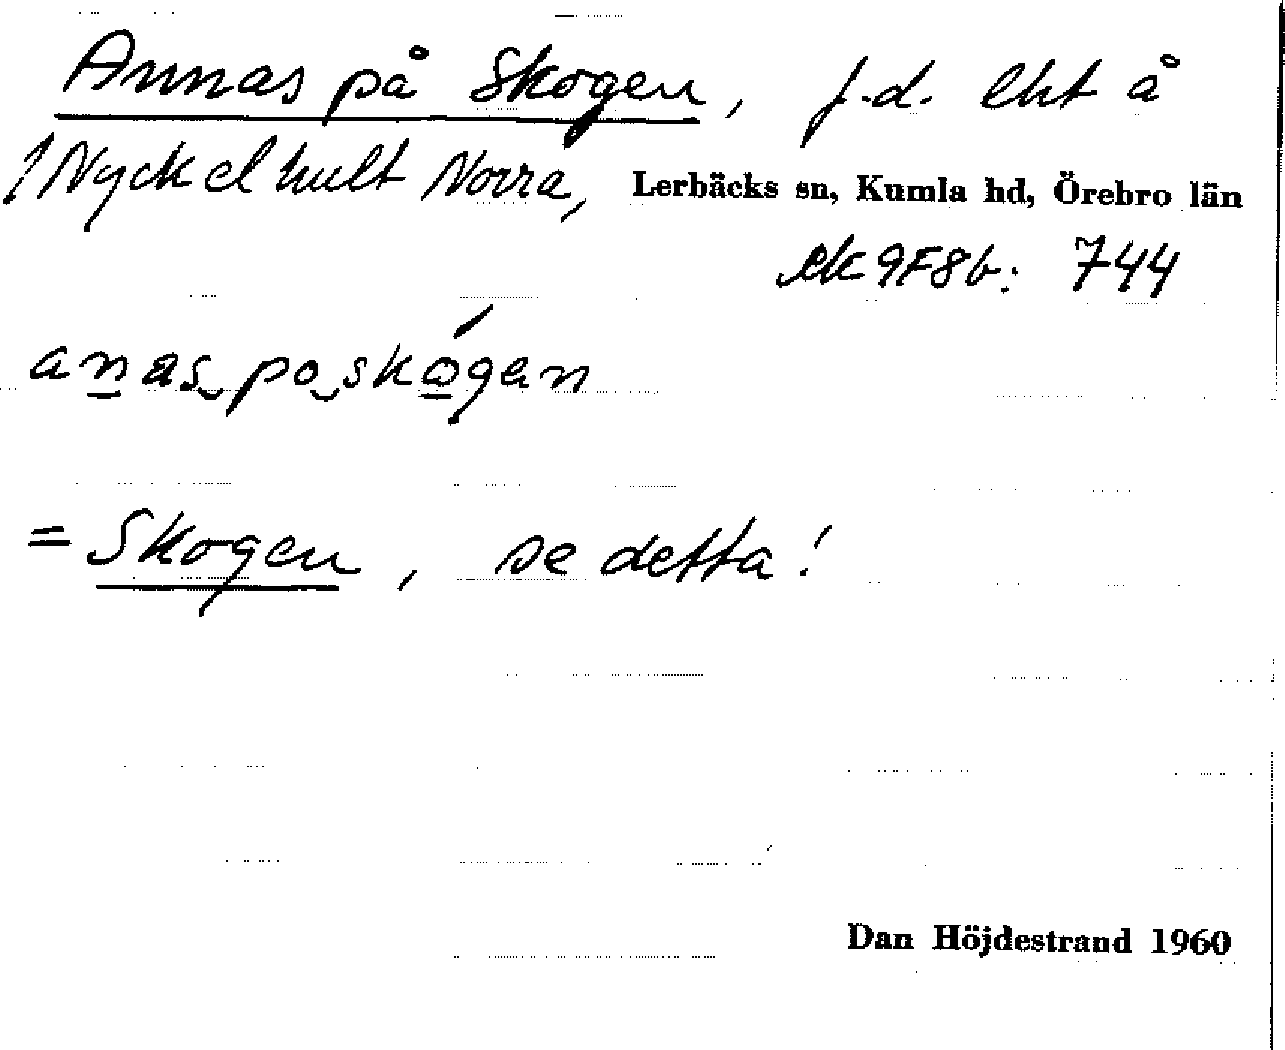 Annas på Skogen, f.d. lht å
/Nyckelhult Norra, Lerbäcks sn, Kumla hd, Örebro län
ek 9F8b: 744
anas po skógen
= Skogen, se detta!
Dan Höjdestrand 1960